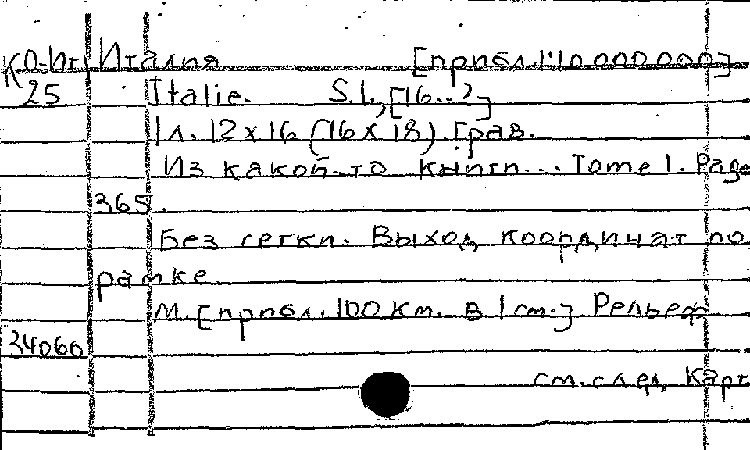 КО-Ит Италия [прибл.1:10.000.000]
25 Italie. S.l.,[16..?]
1 л. 12 x 16 (16 x 18). Грав.
Из какой-то книги... Tome 1. Page
365.
Без сетки. Выход координат по
рамке
М. [прибл. 100 км. в 1 см.] Рельеф
34060
см. след. карт